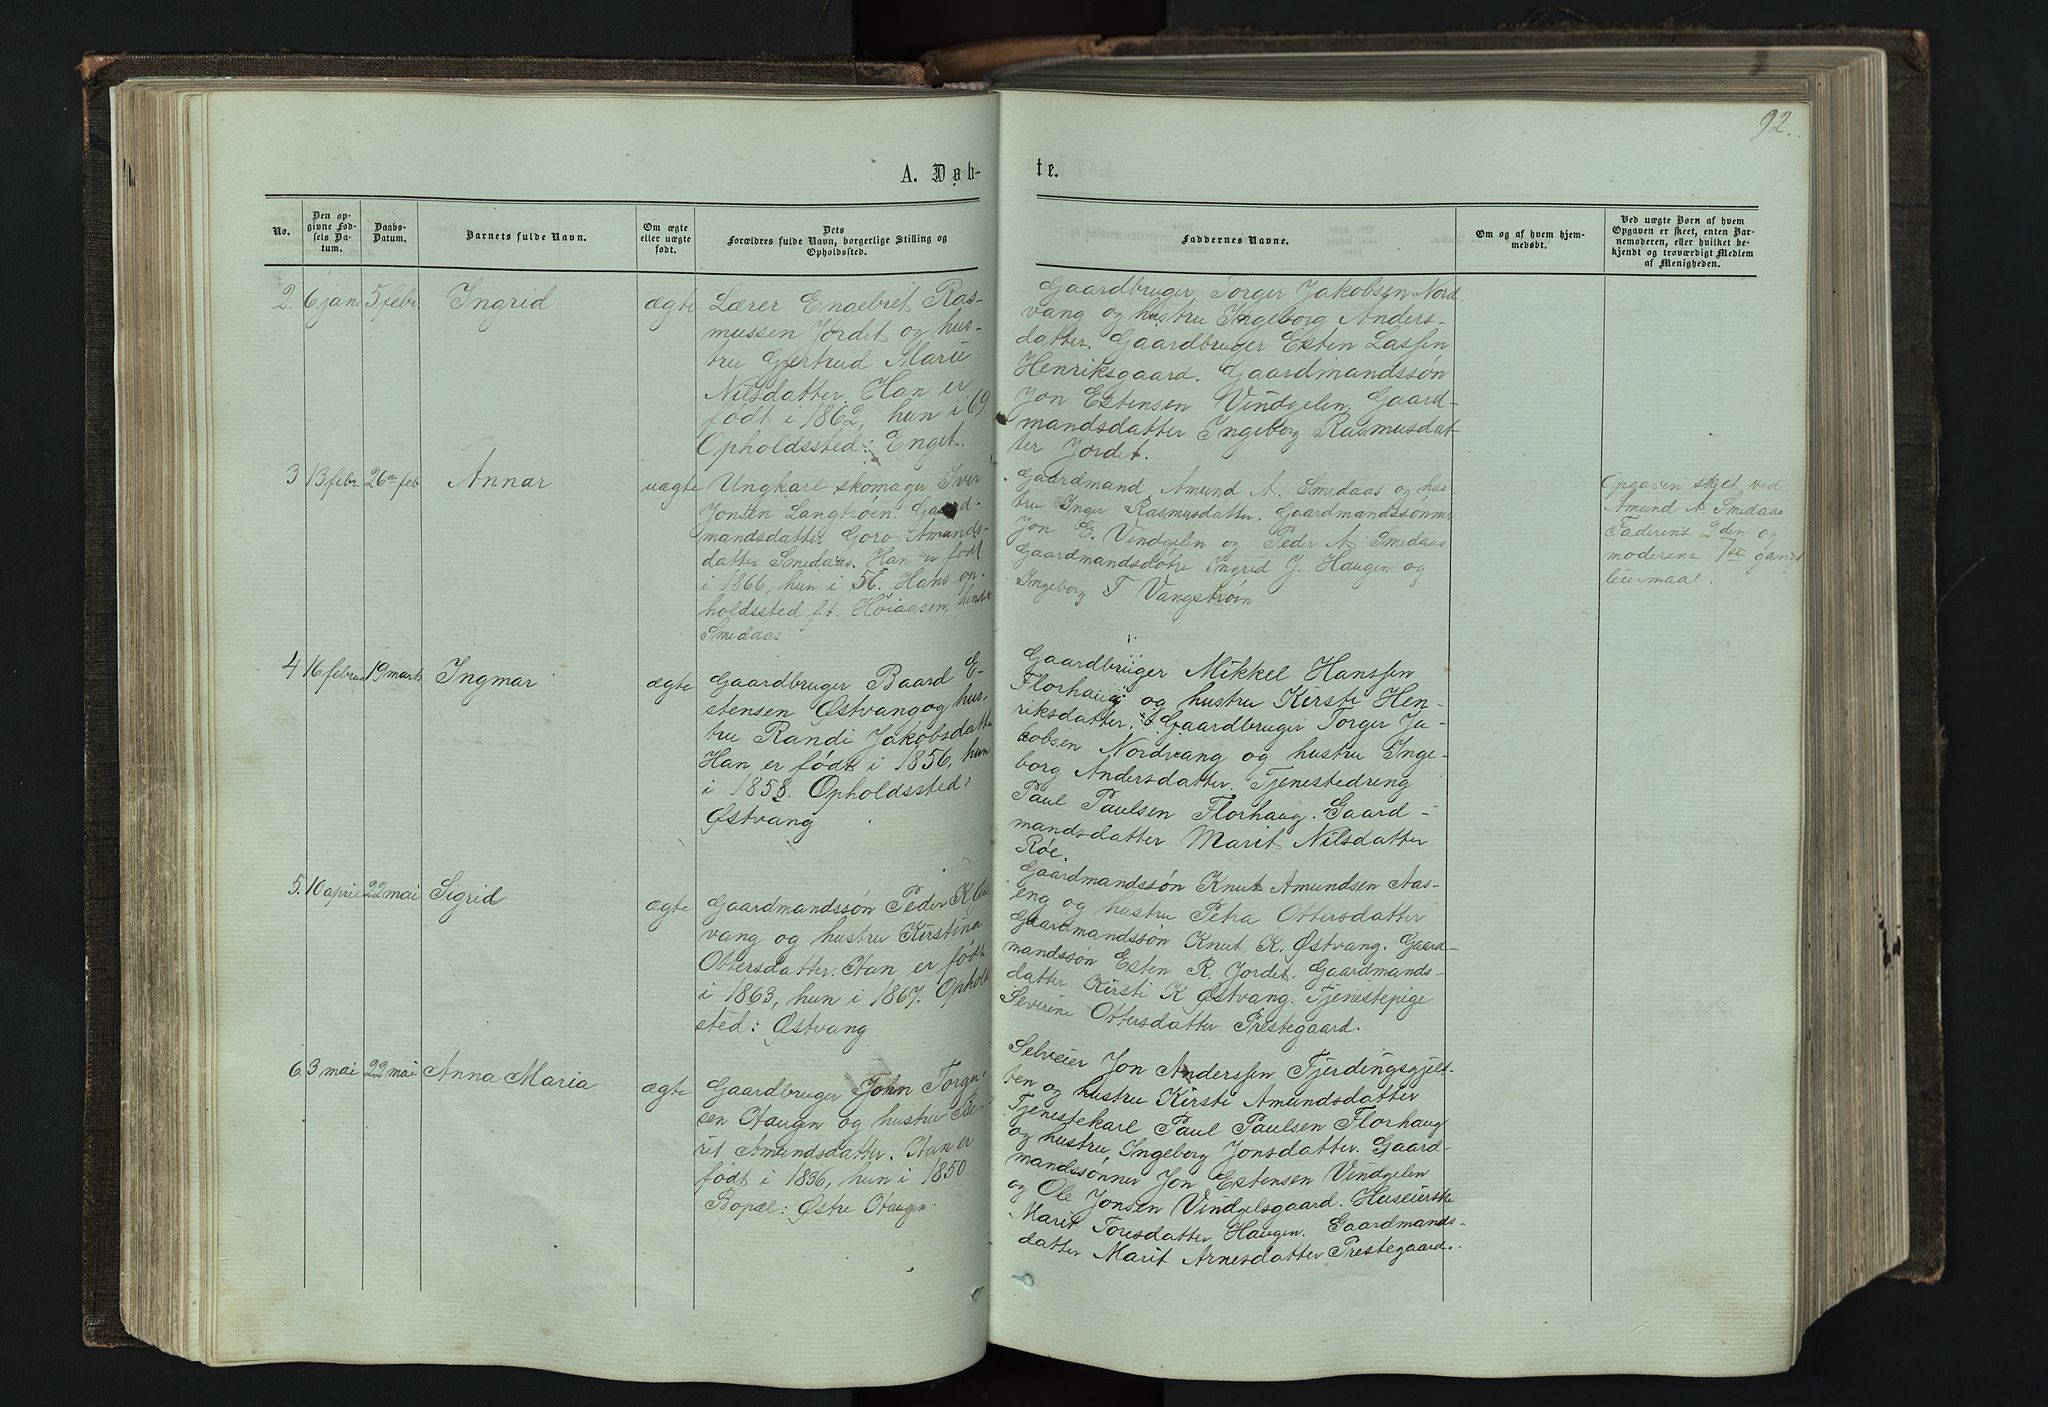 92.
A. Døb-
te.
No.
Den op-
givne Fød-
sels Da-
tum.
Daabs-
Datum.
Barnets fulde Navn.
Om ægte
eller uægte
født.
Dets
Forældres fulde Navn, borgerlige Stilling og
Opholdssted.
Faddernes Navne.
Om og af hvem hjem-
medøbt.
Ved uægte Børn af hvem
Opgaven er skeet, enten Bar-
nemoderen, eller hvilket be-
kjendt og troværdigt Medlem
af Menigheden.
2. 6 jan. 5 febr. Ingrid ægte
Lærer Engebret Ras-
mussen Jordet og hus-
tru Gjertrud Marie
Nilsdatter. Han er
født i 1862, hun i 69.
Opholdssted: Enget.
Gaardbruger Torger Jakobsen Nord
vang og hustru Ingeborg Anders-
datter. Gaardbruger Esten Lassen
Henriksgaard. Gaardmandssøn
Jon Estensen Vindgelen. Gaard-
mandsdatter Ingeborg Rasmusdat-
ter Jordet.
3 13 febr. 26de feb Annar uægte
Ungkarl skomager Iver
Jonsen Langtrøen. Gaard-
mandsdatter Goro Amunds-
datter Smedaas. Han er født
i 1866, hun i 56. Hans op-
holdssted f.t. Høiaasen, hendes
Smedaas
Gaardmand Amund A. Smedaas og hus
tru Inger Rasmusdatter. Gaardmandssønner
Jon E. Vindgelen og Peder A. Smedaas
Gaardmandsdøtre Ingrid J. Haugen og
Ingeborg T Vangstrøin
Opgaven skjet ved
Amund A. Smedaas
Faderens 2den og
moderens 1ste gangs
leiermaal.
4 16 februar 19 marts Ingmar ægte
Gaardbruger Baard E-
stensen Østvang og hus-
tru Randi Jakobsdatt
Han er født i 1856, hun
i 1858. Opholdssted:
Østvang
Gaardbruger Mikkel Hanssen
Florhaug og hustru Kirsti Hen-
riksdatter. Gaardbruger Torger Ja-
kobsen Nordvang og hustru Inge-
borg Andersdatter. Tjenestedreng
Paul Paulsen Florhaug. Gaard-
mandsdatter Marit Nilsdatter
Røe.
5. 10 april 22 mai Sigrid ægte
Gaardmandssøn Peder K Øst
vang og hustru Kirstina
Ottersdatter. Han er født
i 1863, hun i 1867. Ophold
sted: Østvang
Gaardmandssøn Knut Amundsen Aas-
eng og hustru Petra Ottersdatter
Gaardmandssøn Knut K. Østvang. Gaard-
mandssøn Esten R. Jordet. Gaardmands-
datter Kirsti K Østvang. Tjenestepige
Severine Ottersdatter Prestegaard.
6. 3 mai 22 mai Anna Maria ægte
Gaardbruger John Torger
sen Haugn og hustru Be-
rit Amundsdatter. Han er
født i 1836, hun i 1850
Bopæl: Østre Haugen.
Selveier Jon Anderssen Tjerdingsgjelt-
ten og hustru Kirsti Amundsdatter
Tjenestekarl Paul Paulsen Florhaug
og hustru Ingeborg Jonsdatter. Gaard-
mandssønner Jon Estensen Vindgelen
og Ole Jonsen Vindgelsgaard. Huseierske
Marit Toresdatter Haugen. Gaardmands-
datter Marit Arnesdatter Prestegaard.